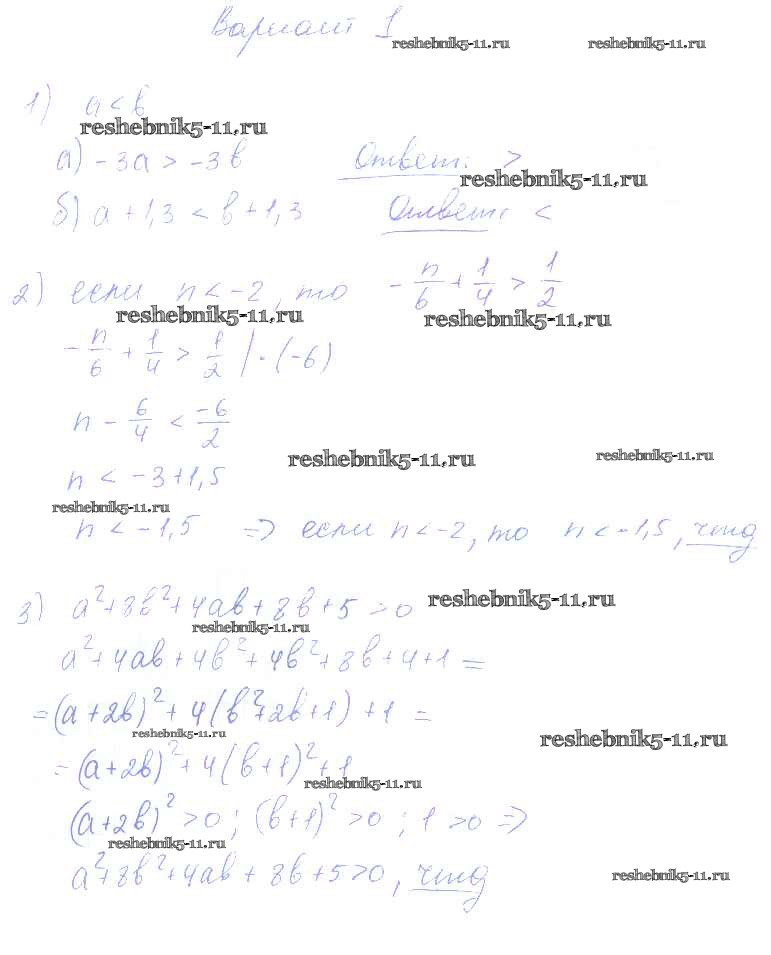 Вариант 1
reshebnik5-11.ru reshebnik5-11.ru
1) a < b
reshebnik5-11.ru
а) -3a > -3b Ответ: >
reshebnik5-11.ru
б) a + 1,3 < b + 1,3 Ответ: <
2) если n < -2, то -n/6 + 1/4 > 1/2
reshebnik5-11.ru reshebnik5-11.ru
-n/6 + 1/4 > 1/2 | · (-6)
n - 6/4 < -6/2
reshebnik5-11.ru reshebnik5-11.ru
n < -3 + 1,5
reshebnik5-11.ru
n < -1,5 => если n < -2, то n < -1,5, чтд
3) a² + 8b² + 4ab + 8b + 5 > 0 reshebnik5-11.ru
reshebnik5-11.ru
a² + 4ab + 4b² + 4b² + 8b + 4 + 1 =
= (a + 2b)² + 4(b² + 2b + 1) + 1 =
reshebnik5-11.ru reshebnik5-11.ru
= (a + 2b)² + 4(b + 1)² + 1
reshebnik5-11.ru
(a + 2b)² > 0; (b + 1)² > 0; 1 > 0 =>
reshebnik5-11.ru
a² + 8b² + 4ab + 8b + 5 > 0, чтд reshebnik5-11.ru